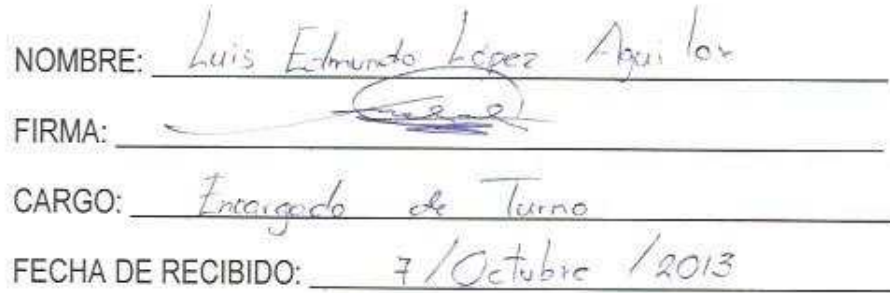 NOMBRE: Luis Edmundo López Aguilar
FIRMA:
CARGO: Encargado de Turno
FECHA DE RECIBIDO: 7/Octubre/2013